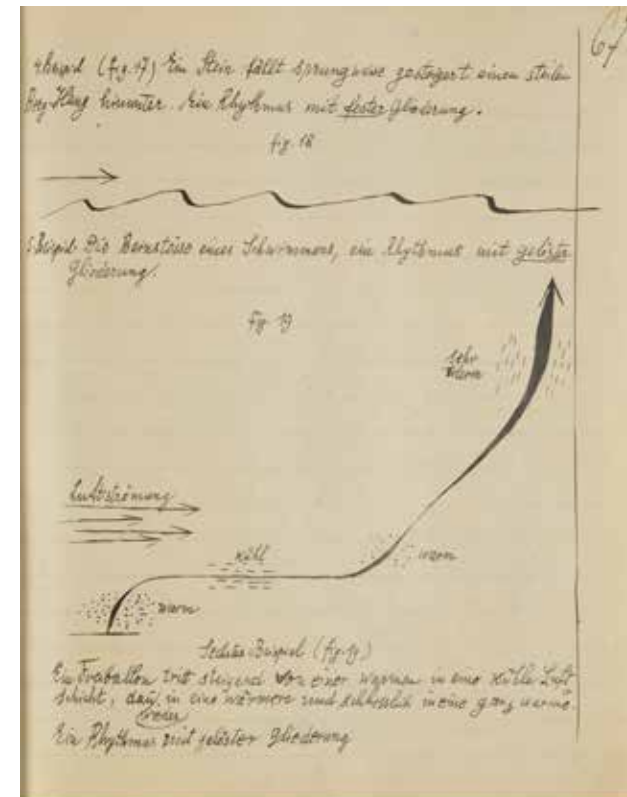 67
4. Beispiel (fig. 17) Ein Stein fällt sprungweise gesteigert einen steilen
Berg-Hang hinunter. Ein Rhythmus mit fester Gliederung.
fig. 18
5. Beispiel. Die eines Schwimmers, ein Rhythmus mit gelöster
Gliederung.
fig. 19
sehr
warm
Luftströmung
kühl
warm
warm
Sechstes Beispiel (fig. 19)
Ein Freiballon tritt steigend von einer warmen in eine kühle Luft
schicht, dann in eine wärmere und schliesslich in eine ganz warme.
wieder
Ein Rhythmus mit gelöster Gliederung